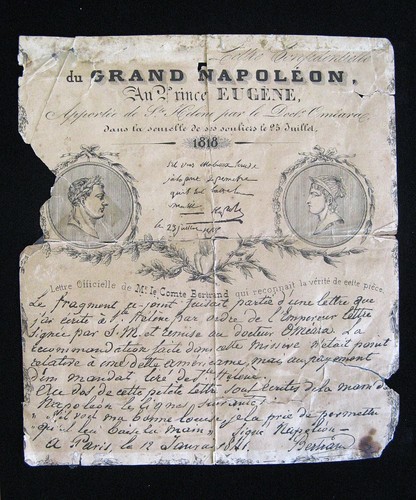 Lettre Confidentielle
du GRAND NAPOLÉON,
Au Prince EUGÈNE,
Apportée de Ste Hélène par le Doctr Oméara,
dans la semelle de ses souliers le 25 Juillet
1818
S'il voit ma bonne Louise
je la prie de permettre
qu'il lui baise la
main
Nap
le 25 juillet 1818
Lettre Officielle de Mr. le Comte Bertrand qui reconnait la vérité de cette pièce.
Le fragment ci-joint faisait partie d'une lettre que
j'ai écrite à Ste Hélène par ordre de l'Empereur lettre
signée par S.M. et remise au docteur Oméara. La
recommandation faite dans cette missive n'était point
relative à une dette américaine, mais au payement
d'un mandat tiré de Ste Hélène.
Au dos de cette petite lettre sont écrites de la main de
Napoléon le lignes suivantes
"S'il voit ma bonne Louise je la prie de permettre
qu'il lui baise la main" Signé Napoléon
A Paris, le 12 Janvier 1841. Bertrand